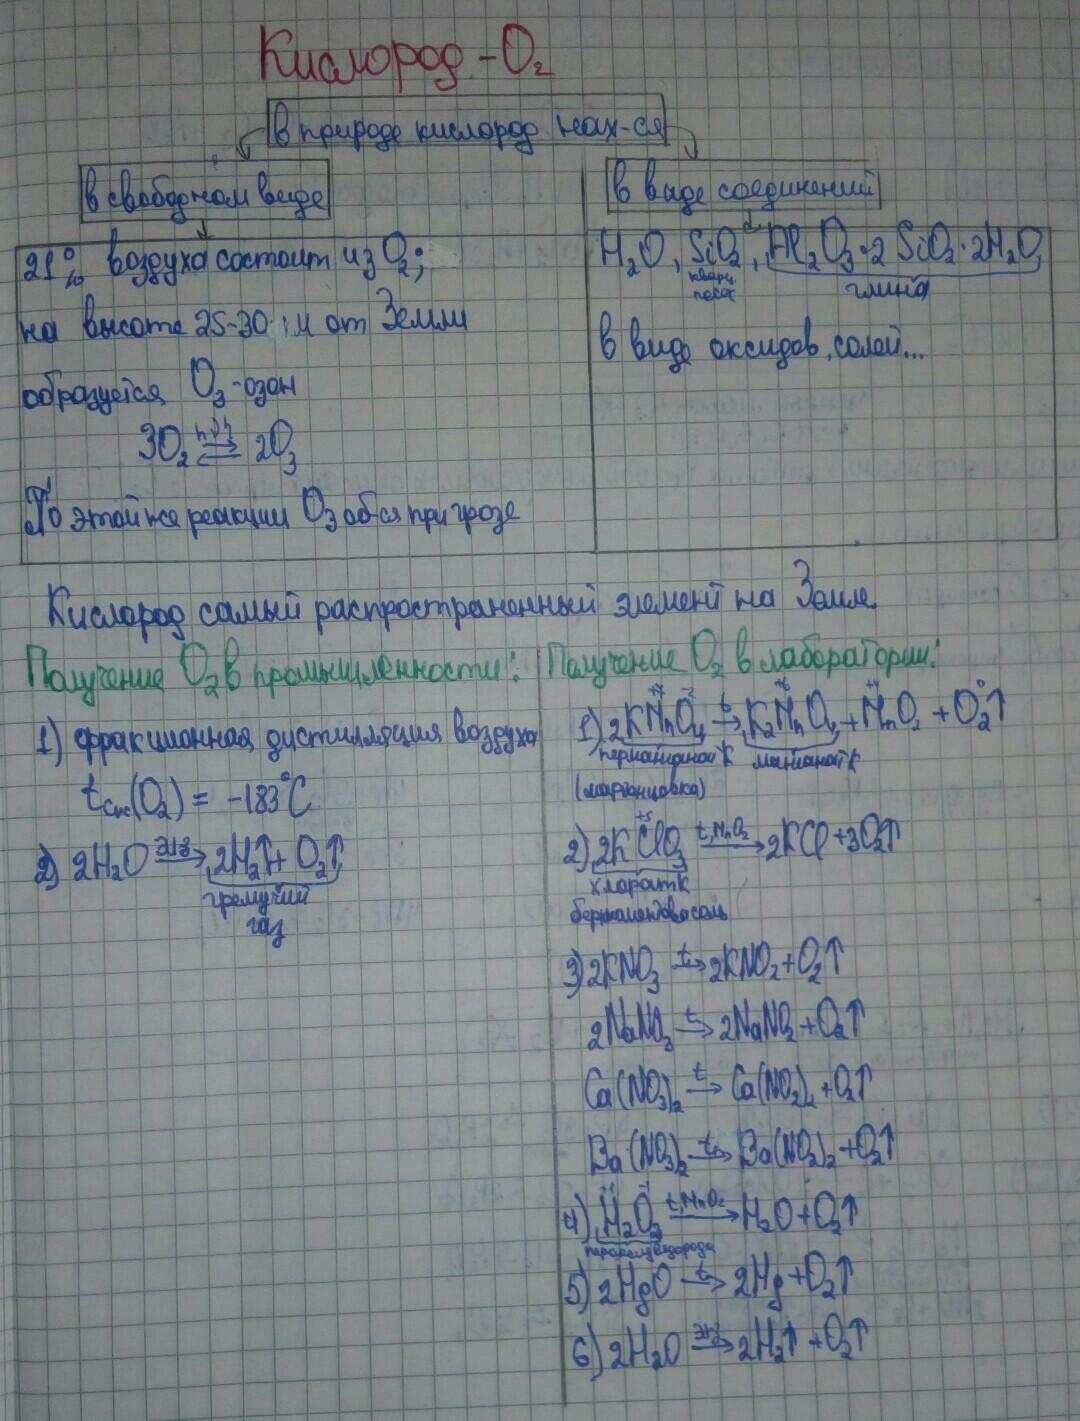 Кислород - O₂
в природе кислород нах-ся
в свободном виде
21% воздуха состоит из O₂;
на высоте 25-30 км от Земли
образуется O₃ - озон
3O₂ ⇄ 2O₃
По этой же реакции O₃ об-ся при грозе
в виде соединений
H₂O, SiO₂, Al₂O₃·2SiO₂·2H₂O
кварц песок
глина
в виде оксидов, солей...
Кислород самый распространенный элемент на Земле.
Получение O₂ в промышленности:
1) фракционная дистилляция воздуха
t (O₂) = -183°C
2) 2H₂O эл-з→ 2H₂↑ + O₂↑
гремучий
газ
Получение O₂ в лаборатории:
+7 -2 +6 +4 0
1) 2KMnO₄ t→ K₂MnO₄ + MnO₂ + O₂↑
перманганат K манганат K
(марганцовка)
+5
2) 2KClO₃ t, MnO₂→ 2KCl + 3O₂↑
хлорат K
бертолетова соль
3) 2KNO₃ t→ 2KNO₂ + O₂↑
2NaNO₃ t→ 2NaNO₂ + O₂↑
Ca(NO₃)₂ t→ Ca(NO₂)₂ + O₂↑
Ba(NO₃)₂ t→ Ba(NO₂)₂ + O₂↑
+1 -1
4) H₂O₂ t, MnO₂→ H₂O + O₂↑
пероксид водорода
5) 2HgO t→ 2Hg + O₂↑
6) 2H₂O эл-з→ 2H₂↑ + O₂↑